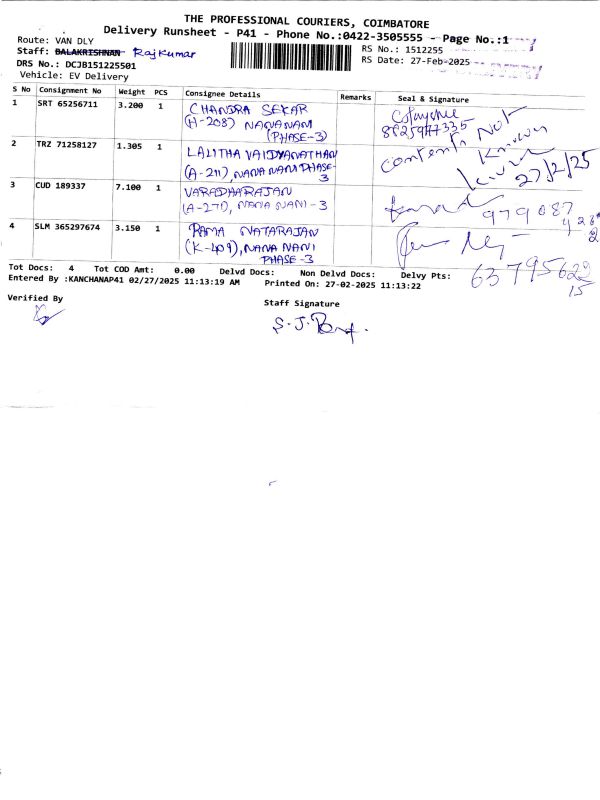 THE PROFESSIONAL COURIERS, COIMBATORE
Delivery Runsheet - P41 - Phone No.:0422-3505555 - Page No.:1
Route: VAN DLY
RS No.: 1512255
Staff: BALAKRISHNAN Rajkumar
RS Date: 27-Feb-2025
DRS No.: DCJB151225501
Vehicle: EV Delivery
S No Consignment No Weight PCS Consignee Details Remarks Seal & Signature
1 SRT 65256711 3.200 1 CHANDRA SEKAR
(H-208) NANANANI
(PHASE-3)
2 TRZ 71258127 1.305 1 LALITHA VAIDYANATHAN
(A-211), NANA NANI PHASE-
3
Contents Not
Known
27/2/25
3 CUD 189337 7.100 1 VARADHARAJAN
(A-271), NANA NANI - 3
979087
4 SLM 365297674 3.150 1 RAMA NATARAJAN
(K-409), NANA NANI
PHASE-3
63795628
15
Tot Docs: 4 Tot COD Amt: 0.00 Delvd Docs: Non Delvd Docs: Delvy Pts:
Entered By :KANCHANAP41 02/27/2025 11:13:19 AM Printed On: 27-02-2025 11:13:22
Verified By
Staff Signature